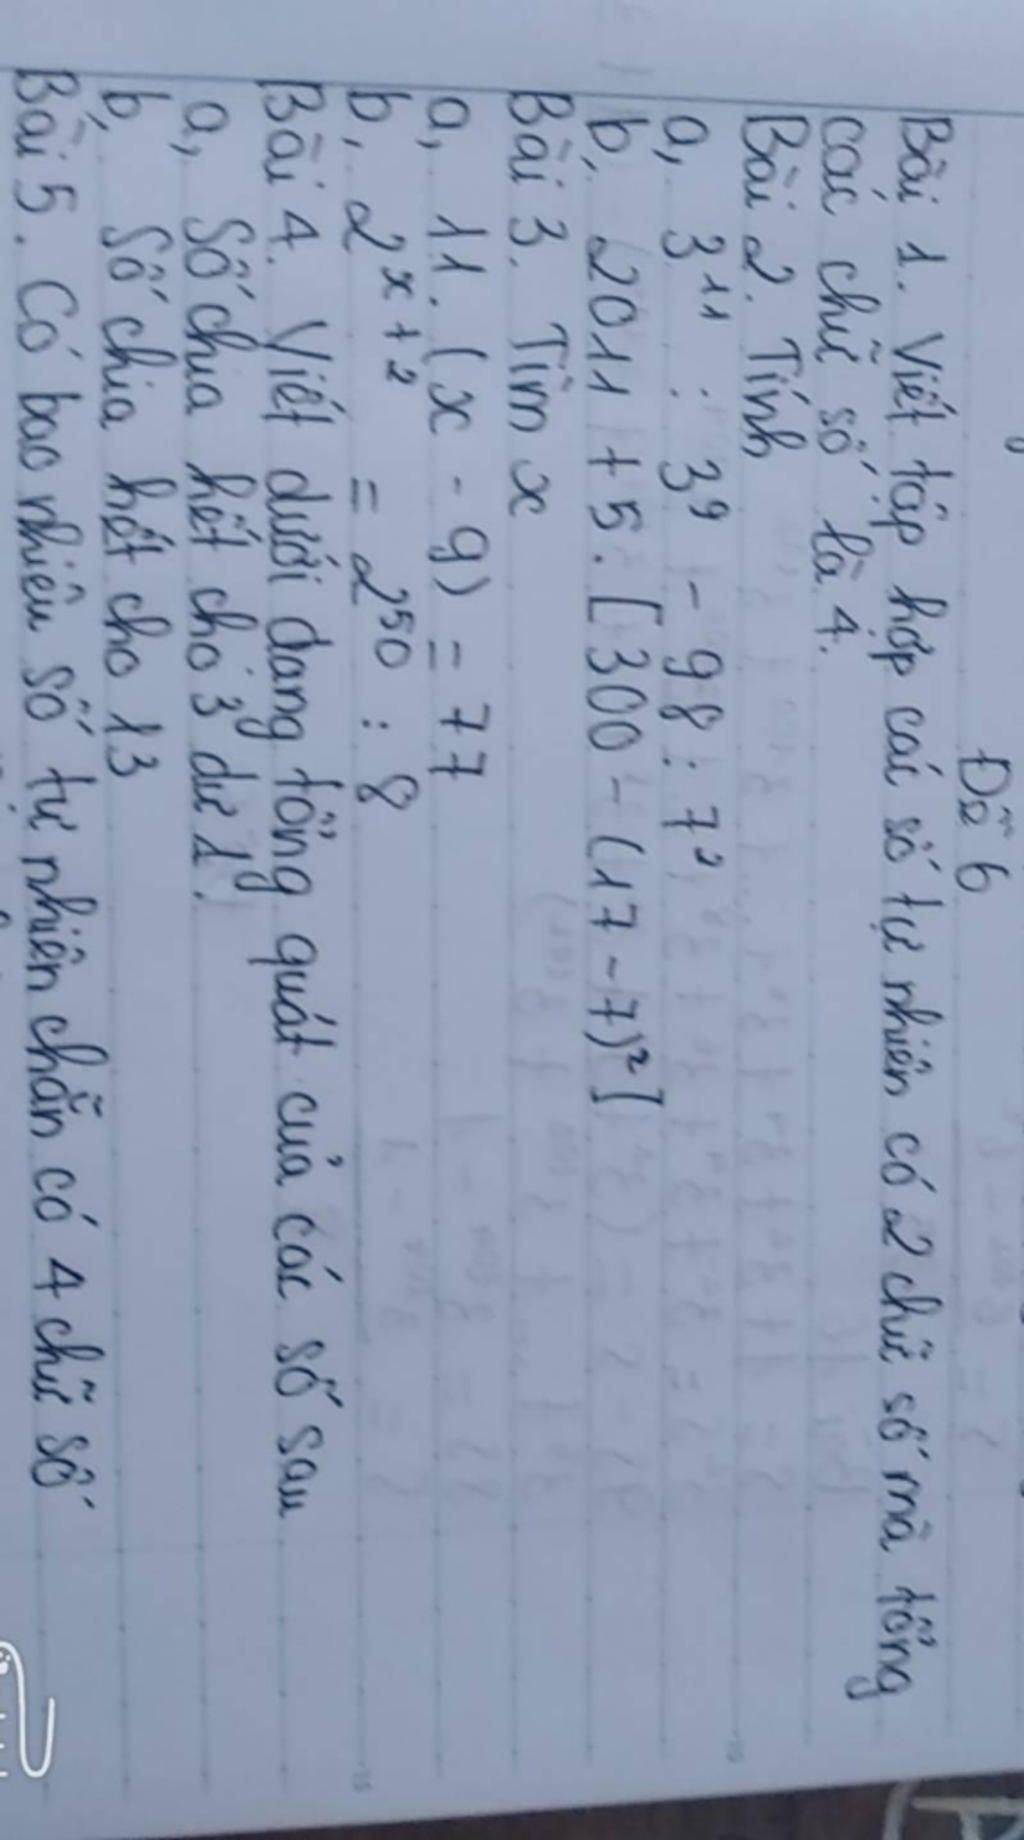 Đề 6
Bài 1. Viết tập hợp các số tự nhiên có 2 chữ số mà tổng
các chữ số là 4.
Bài 2. Tính
a, 3¹¹ : 3⁹ - 98 : 7²
b, 2011 + 5 . [300 - (17 - 7)²]
Bài 3. Tìm x
a, 11 . (x - 9) = 77
b, 2ˣ⁺² = 2⁵⁰ : 8
Bài 4. Viết dưới dạng tổng quát của các số sau
a, Số chia hết cho 3 dư 1.
b, Số chia hết cho 13
Bài 5. Có bao nhiêu số tự nhiên chẵn có 4 chữ số